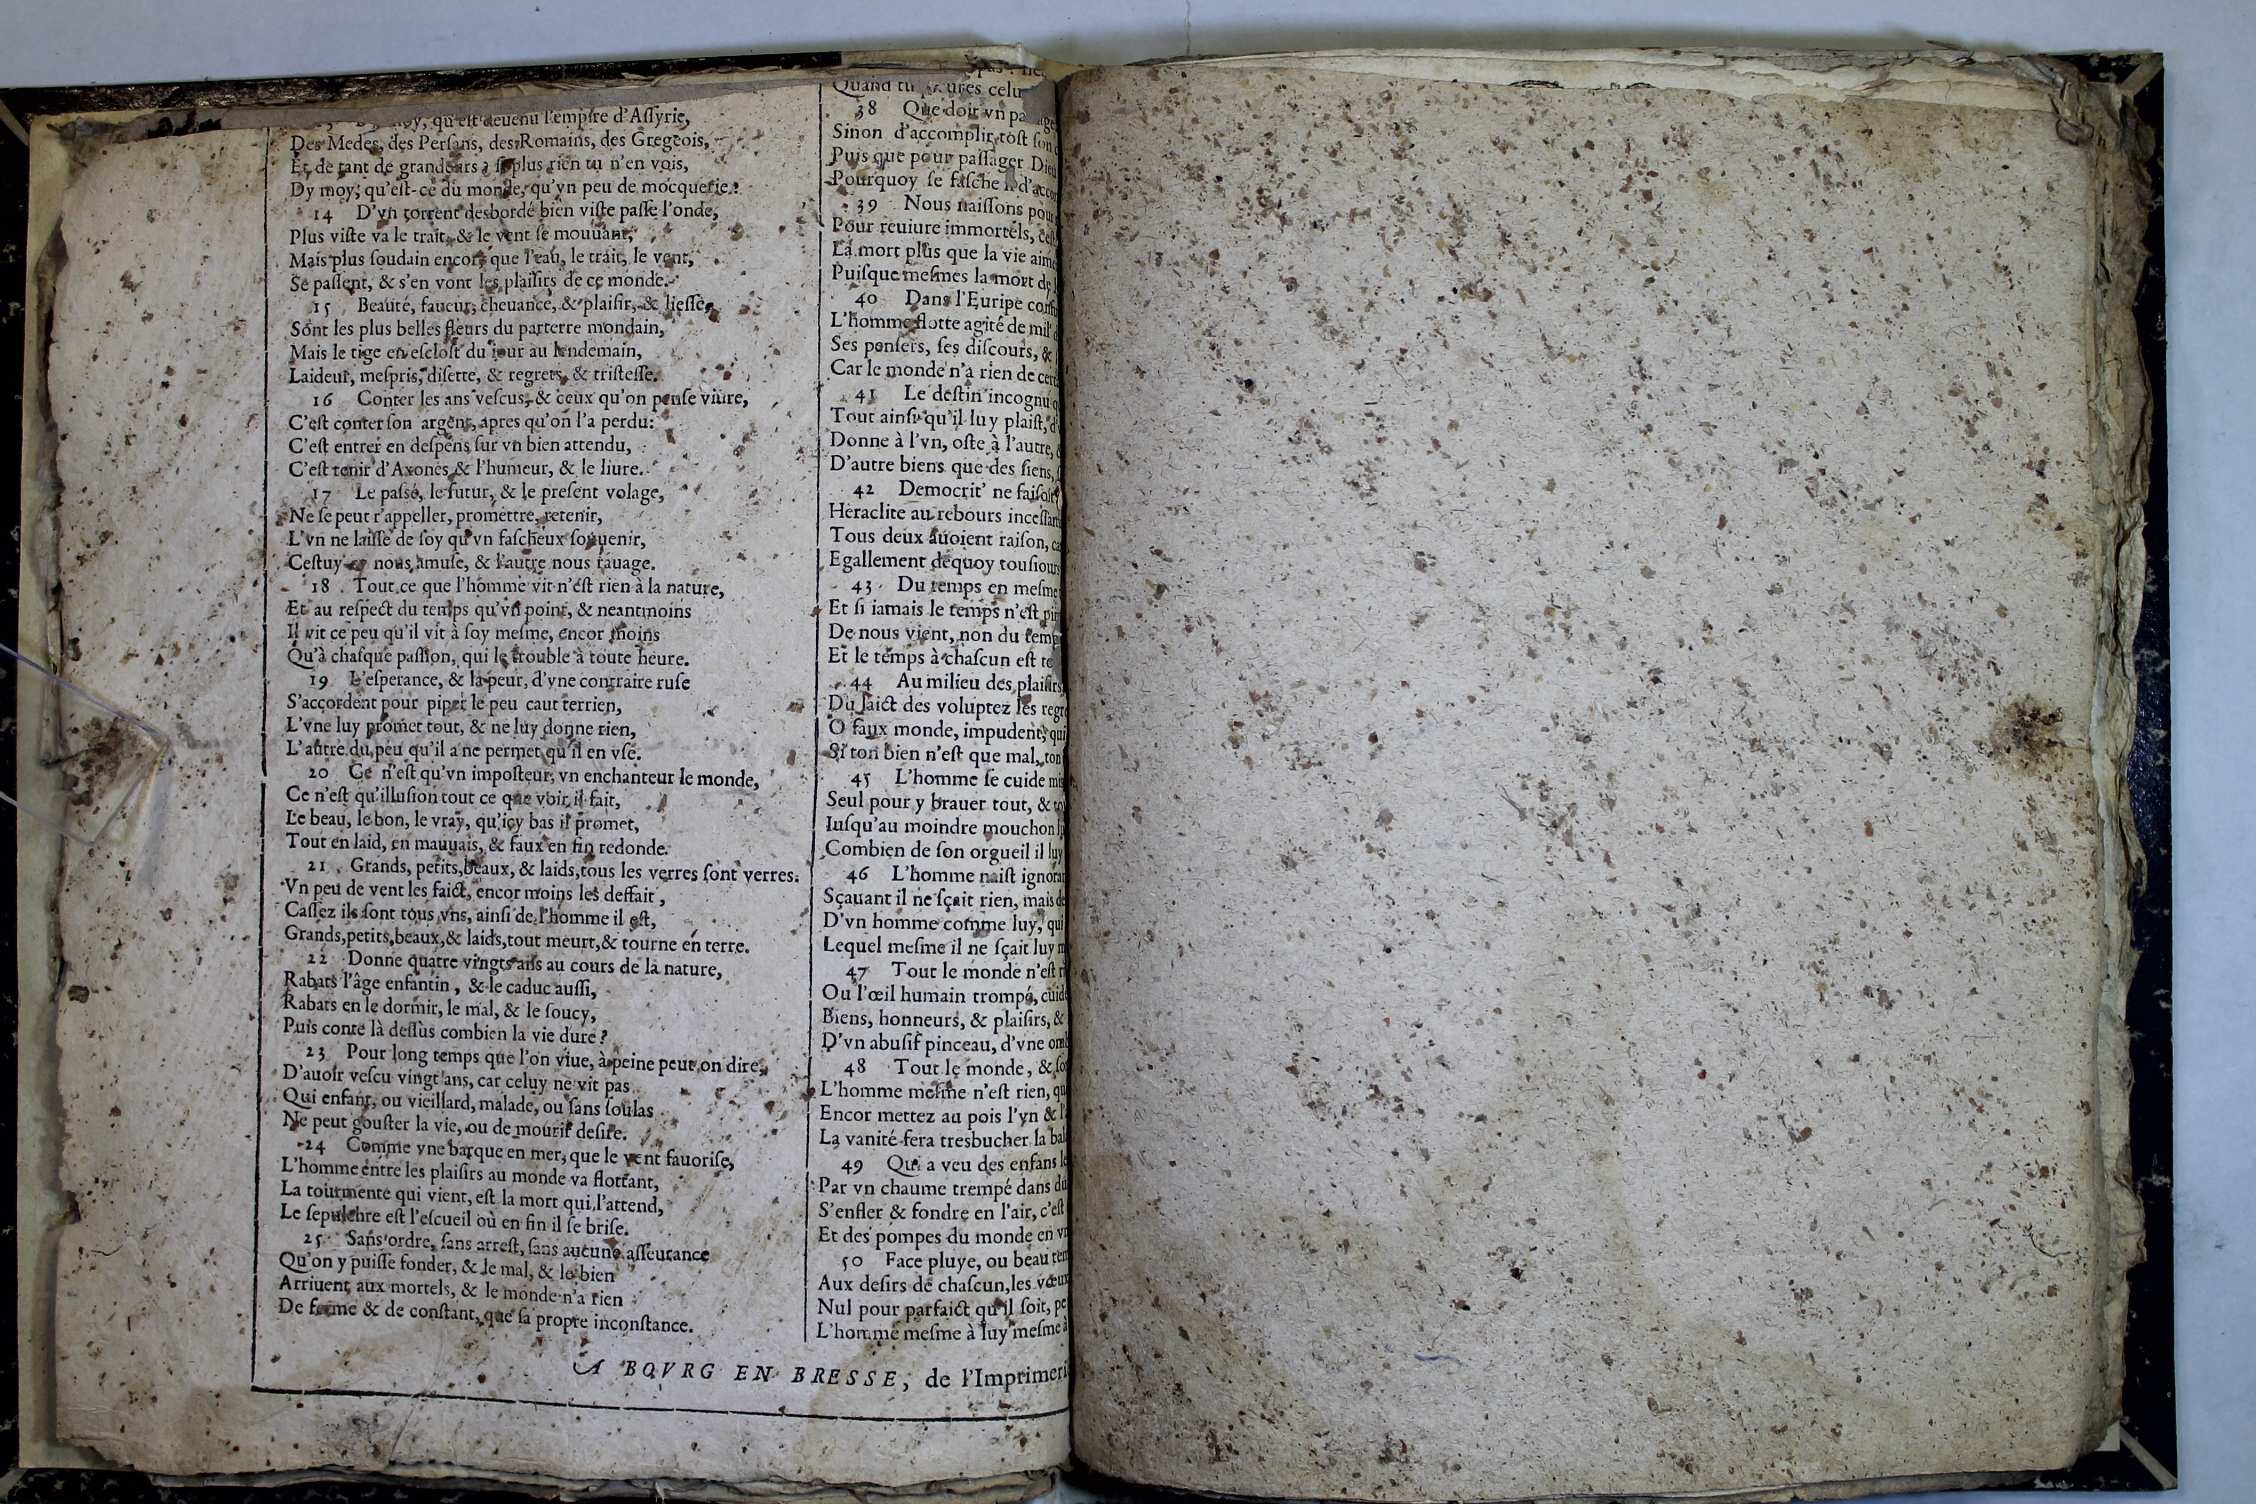 qu'est deuenu l'empire d'Aſſyrie,
Des Medes, des Perſans, des Romains, des Gregeois,
Et de tant de grandeurs ſi plus rien tu n'en vois,
Dy moy, qu'eſt-ce du monde, qu'vn peu de mocquerie.
14 D'vn torrent desbordé bien viſte paſſe l'onde,
Plus viſte va le trait, & le vent ſe mouuant,
Mais plus ſoudain encor, que l'eau, le trait, le vent,
Se paſſent, & s'en vont les plaiſirs de ce monde.
15 Beauté, faueur, cheuance, & plaiſir, & lieſſe,
Sont les plus belles fleurs du parterre mondain,
Mais le tige en eſcloſt du iour au lendemain,
Laideur, meſpris, diſette, & regrets, & triſteſſe.
16 Conter les ans veſcus, & ceux qu'on penſe viure,
C'eſt conter ſon argent, apres qu'on l'a perdu:
C'eſt entrer en deſpens ſur vn bien attendu,
C'eſt tenir d'Axones & l'humeur, & le liure.
17 Le paſſé, le futur, & le preſent volage,
Ne ſe peut r'appeller, promettre, retenir,
L'vn ne laiſſe de ſoy qu'vn faſcheux ſouuenir,
Ceſtuy-cy nous amuſe, & l'autre nous rauage.
18 Tout ce que l'homme vit n'eſt rien à la nature,
Et au reſpect du temps qu'vn point, & neantmoins
Il vit ce peu qu'il vit à ſoy meſme, encor moins
Qu'à chaſque paſſion, qui le trouble à toute heure.
19 L'eſperance, & la peur, d'vne contraire ruſe
S'accordent pour piper le peu caut terrien,
L'vne luy promet tout, & ne luy donne rien,
L'autre du peu qu'il a ne permet qu'il en vſe.
20 Ce n'eſt qu'vn impoſteur, vn enchanteur le monde,
Ce n'eſt qu'illuſion tout ce que voir il fait,
Le beau, le bon, le vray, qu'icy bas il promet,
Tout en laid, en mauuais, & faux en fin redonde.
21 Grands, petits, beaux, & laids, tous les verres ſont verres.
Vn peu de vent les faict, encor moins les deffait,
Caſſez ils ſont tous vns, ainſi de l'homme il eſt,
Grands, petits, beaux, & laids, tout meurt, & tourne en terre.
22 Donne quatre vingts ans au cours de la nature,
Rabats l'âge enfantin, & le caduc auſſi,
Rabats en le dormir, le mal, & le ſoucy,
Puis conte là deſſus combien la vie dure?
23 Pour long temps que l'on viue, à peine peut on dire,
D'auoir veſcu vingt ans, car celuy ne vit pas
Qui enfant, ou vieillard, malade, ou ſans ſoulas
Ne peut gouſter la vie, ou de mourir deſire.
24 Comme vne barque en mer, que le vent fauoriſe,
L'homme entre les plaiſirs au monde va flottant,
La tourmente qui vient, eſt la mort qui l'attend,
Le ſepulchre eſt l'eſcueil où en fin il ſe briſe.
25 Sans ordre, ſans arreſt, ſans aucune aſſeurance
Qu'on y puiſſe fonder, & le mal, & le bien
Arriuent aux mortels, & le monde n'a rien
De ferme & de conſtant, que ſa propre inconſtance.
Quand tu celu
38 Que doit vn
Sinon d'accomplir toſt ſon
Puis que pour paſſager Dieu
Pourquoy ſe faſche
39 Nous naiſſons pour
Pour reuiure immortels, c'eſt
La mort plus que la vie
Puiſque meſmes la mort
40 Dans l'Euripe
L'homme flotte agité de mil'
Ses penſers, ſes diſcours, &
Car le monde n'a rien de
41 Le deſtin incognu
Tout ainſi qu'il luy plaiſt,
Donne à l'vn, oſte à l'autre,
D'autre biens que des ſiens,
42 Democrit' ne faiſoit
Heraclite au rebours
Tous deux auoient raiſon,
Egallement dequoy touſiours
43 Du temps en meſme
Et ſi iamais le temps n'eſt
De nous vient, non du temps
Et le temps à chaſcun eſt
44 Au milieu des plaiſirs
Du laict des voluptez les
O faux monde, impudent, qui
Si ton bien n'eſt que mal, ton
45 L'homme ſe cuide
Seul pour y brauer tout, &
Iuſqu'au moindre mouchon
Combien de ſon orgueil il luy
46 L'homme naiſt
Sçauant il ne ſçait rien, mais
D'vn homme comme luy, qui
Lequel meſme il ne ſçait luy
47 Tout le monde n'eſt
Ou l'œil humain trompé,
Biens, honneurs, & plaiſirs, &
D'vn abuſif pinceau, d'vne
48 Tout le monde, &
L'homme meſme n'eſt rien,
Encor mettez au pois l'vn &
La vanité fera tresbucher la
49 Qui a veu des enfans
Par vn chaume trempé dans
S'enfler & fondre en l'air, c'eſt
Et des pompes du monde en
50 Face pluye, ou beau
Aux deſirs de chaſcun, les
Nul pour parfaict qu'il ſoit,
L'homme meſme à luy meſme à
A BOVRG EN BRESSE, de l'Imprimeri